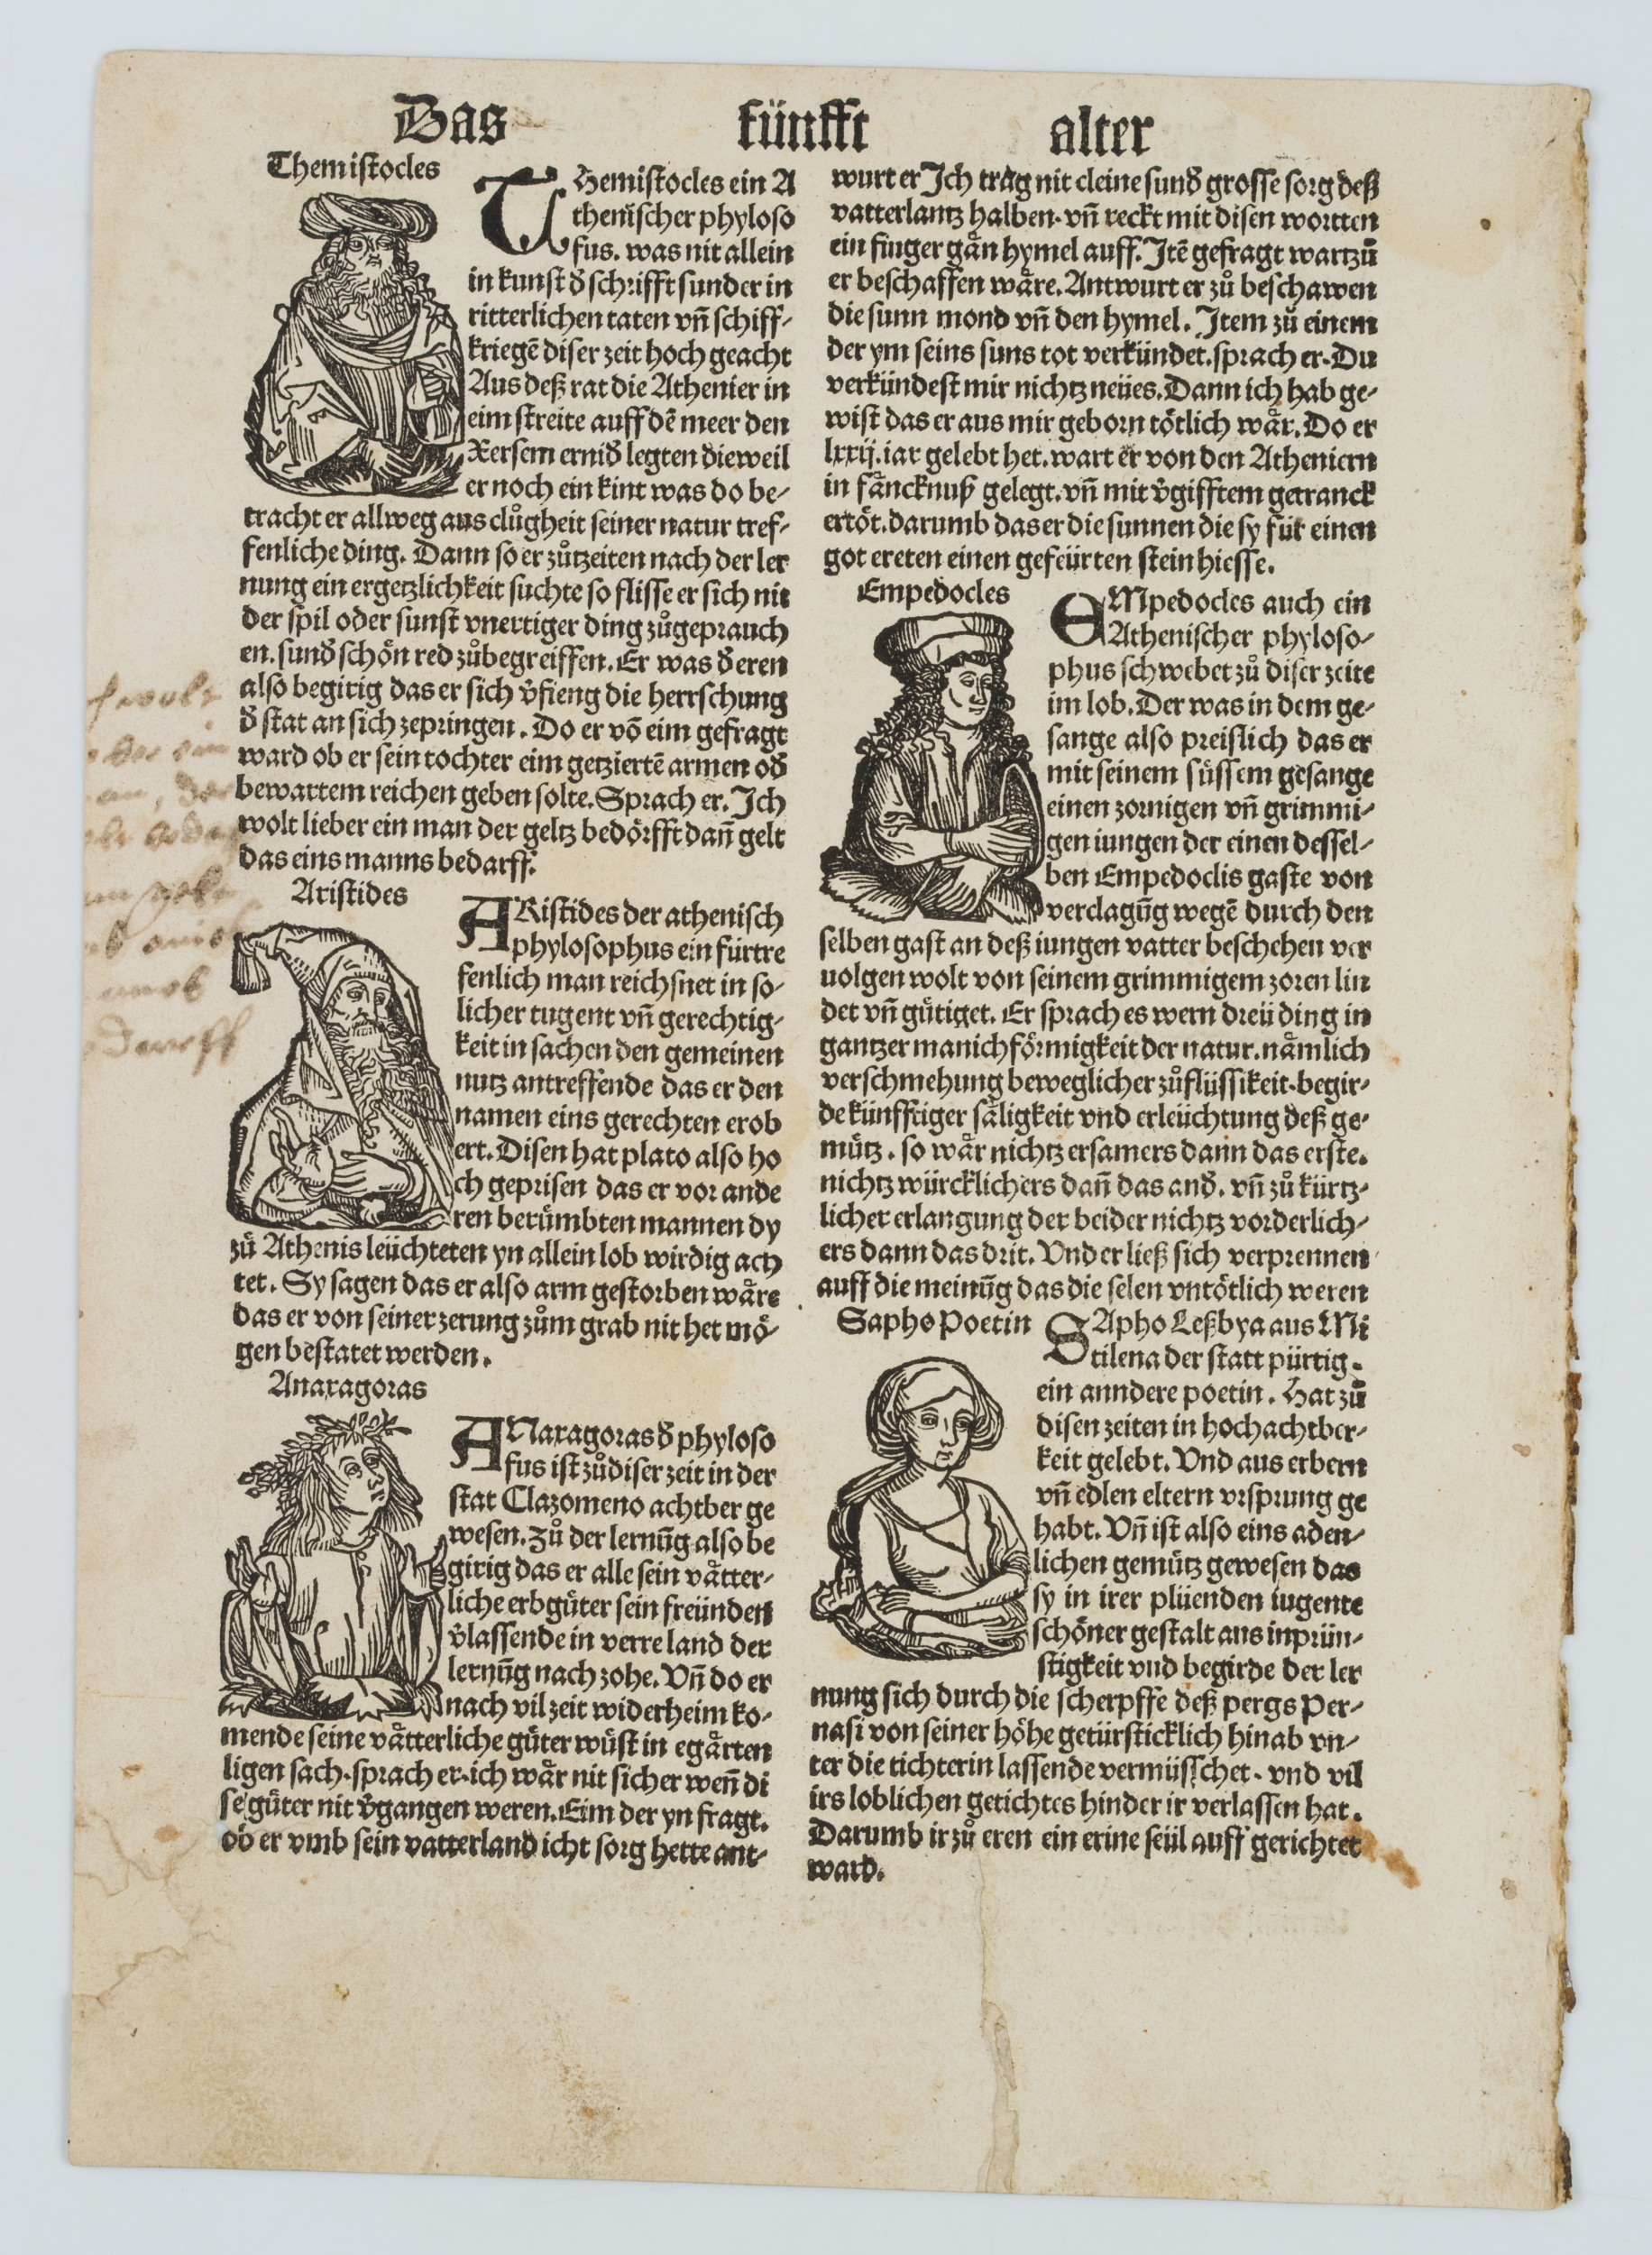 Das fünfft alter
Themistocles
THemistocles ein A
thenischer phyloso
fus. was nit allein
in kunst đ schrifft sunder in
ritterlichen taten vñ schiff-
kriegē diser zeit hoch geacht
Aus deß rat die Athenier in
eim streite auff dē meer den
Xersem erniđ legten dieweil
er noch ein kint was do be-
tracht er allweg aus clůgheit seiner natur tref-
fenliche ding. Dann so er zůtzeiten nach der ler
nung ein ergetzlichkeit suchte so flisse er sich nit
der spil oder sunst vnertiger ding zůgeprauch
en. sunđ schön red zůbegreiffen. Er was đ eren
also begirig das er sich v̄fieng die herrschung
đ stat an sich zepringen. Do er vō eim gefragt
ward ob er sein tochter eim getziertē armen ođ
bewartem reichen geben solte. Sprach er. Ich
wolt lieber ein man der geltz bedörfft dañ gelt
das eins manns bedarff.
Aristides
ARistides der athenisch
phylosophus ein fürtre
fenlich man reichsnet in so-
licher tugent vñ gerechtig-
keit in sachen den gemeinen
nutz antreffende das er den
namen eins gerechten erob
ert. Disen hat plato also ho
ch geprisen das er vor ande
ren berümbten mannen dy
zů Athenis leüchteten yn allein lob wirdig ach
tet. Sy sagen das er also arm gestorben wäre
das er von seiner zerung zům grab nit het mö-
gen bestatet werden.
Anaxagoras
ANaxagoras đ phyloso
fus ist zůdiser zeit in der
stat Clazomeno achtber ge
wesen. Zů der lernūg also be
girig das er alle sein vätter-
liche erbgüter sein freünden
v̄lassende in verre land der
lernūg nach zohe. Vñ do er
nach vil zeit widerheim ko-
mende seine vätterliche güter wüst in egärten
ligen sach. sprach er. ich wär nit sicher weñ di
se güter nit v̄gangen weren. Eim der yn fragt.
ob er vmb sein vatterland icht sorg hette ant-
wurt er Ich träg nit cleine sunđ grosse sorg deß
vatterlantz halben. vñ reckt mit disen wortten
ein finger gän hymel auff. Itē gefragt wartzů
er beschaffen wäre. Antwurt er zů beschawen
die sunn mond vñ den hymel. Item zů einem
der ym seins suns tot verkündet. sprach er. Du
verkündest mir nichtz neües. Dann ich hab ge-
wist das er aus mir geborn tötlich wär. Do er
lxxij. iar gelebt het. wart er von den Atheniern
in fäncknuß gelegt. vñ mit v̄gifftem getranck
ertöt. darumb das er die sunnen die sy für einen
got ereten einen gefeürten stein hiesse.
Empedocles
EMpedocles auch ein
Athenischer phyloso-
phus schwebet zů diser zeite
im lob. Der was in dem ge-
sange also preislich das er
mit seinem süssem gesange
einen zornigen vñ grimmi-
gen iungen der einen dessel-
ben Empedoclis gaste von
verclagūg wegē durch den
selben gast an deß iungen vatter beschehen ver
uolgen wolt von seinem grimmigem zoren lin
det vñ gütiget. Er sprach es wern dreü ding in
gantzer manichförmigkeit der natur. nämlich
verschmehung beweglicher zůflüssikeit. begir-
de künfftiger säligkeit vnd erleüchtung deß ge-
mütz. so wär nichtz ersamers dann das erste.
nichtz würcklichers dañ das anđ. vñ zů kürtz-
licher erlangung der beider nichtz vorderlich-
ers dann das drit. Vnd er ließ sich verprennen
auff die meinūg das die selen vntötlich weren
Sapho Poetin
SApho Leßbya aus Mi
tilena der statt pürtig.
ein anndere poetin. Hat zů
disen zeiten in hochachtber-
keit gelebt. Vnd aus erbern
vñ edlen eltern vrsprung ge
habt. Vñ ist also eins aden-
lichen gemütz gewesen das
sy in irer plüenden iugente
schöner gestalt aus inprün-
stigkeit vnd begirde der ler
nung sich durch die scherpffe deß pergs Per-
nasi von seiner höhe getürsticklich hinab vn-
ter die tichterin lassende vermüsschet. vnd vil
irs loblichen getichtes hinder ir verlassen hat.
Darumb ir zů eren ein erine seül auff gerichtet
ward.